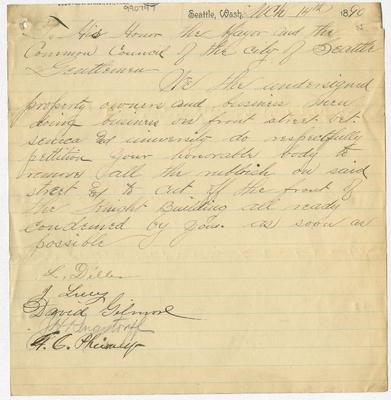 990747
Seattle, Wash. Mch 14th 1890
To His Honor the Mayor and the
Common Council of the city of Seattle
Gentlemen
We the undersigned
property owners and business men
doing business on front street bet.
seneca and university do respectfully
petition your honorable body to
remove all the rubbish on said
street and to cut off the front of
the Knight Building all ready
condemed by you. as soon as
possible
L. Diller
J Levy
David Gilmore